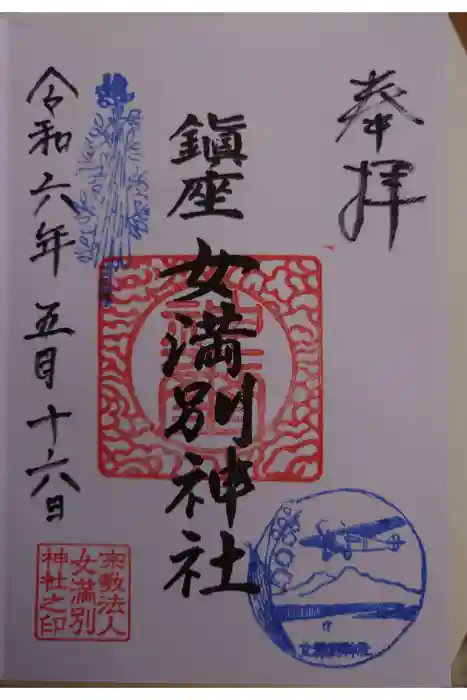 奉拝
鎭座
女満別神社
令和六年五月十六日
宗教法人
女満別
神社之印